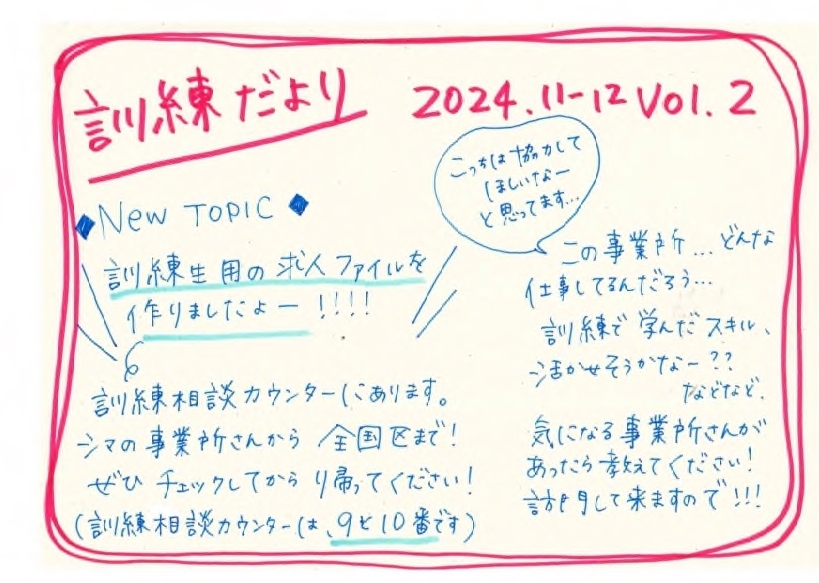 訓練だより 2024.11-12 Vol.2
こっちは協力して
ほしいなー
と思ってます...
◆New TOPIC◆
訓練生用の求人ファイルを
作りましたよー!!!!
訓練相談カウンターにあります。
シマの事業所さんから全国区まで!
ぜひチェックしてからり帰ってください!
(訓練相談カウンターは、9と10番です)
この事業所...どんな
仕事してるんだろう...
訓練で学んだスキル、
活かせそうかなー??
などなど、
気になる事業所さんが
あったら教えてください!
訪問して来ますので!!!